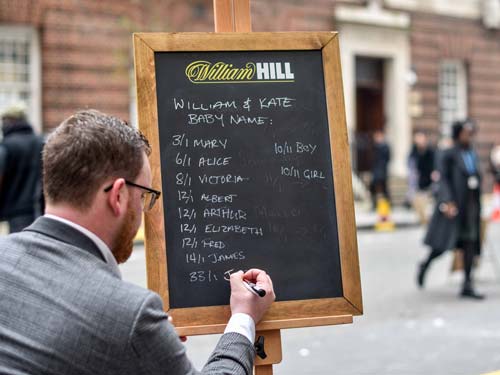 William HILL
WILLIAM & KATE
BABY NAME:
3/1 MARY
6/1 ALICE
8/1 VICTORIA
12/1 ALBERT
12/1 ARTHUR
12/1 ELIZABETH
12/1 FRED
14/1 JAMES
33/1 J
10/11 BOY
10/11 GIRL